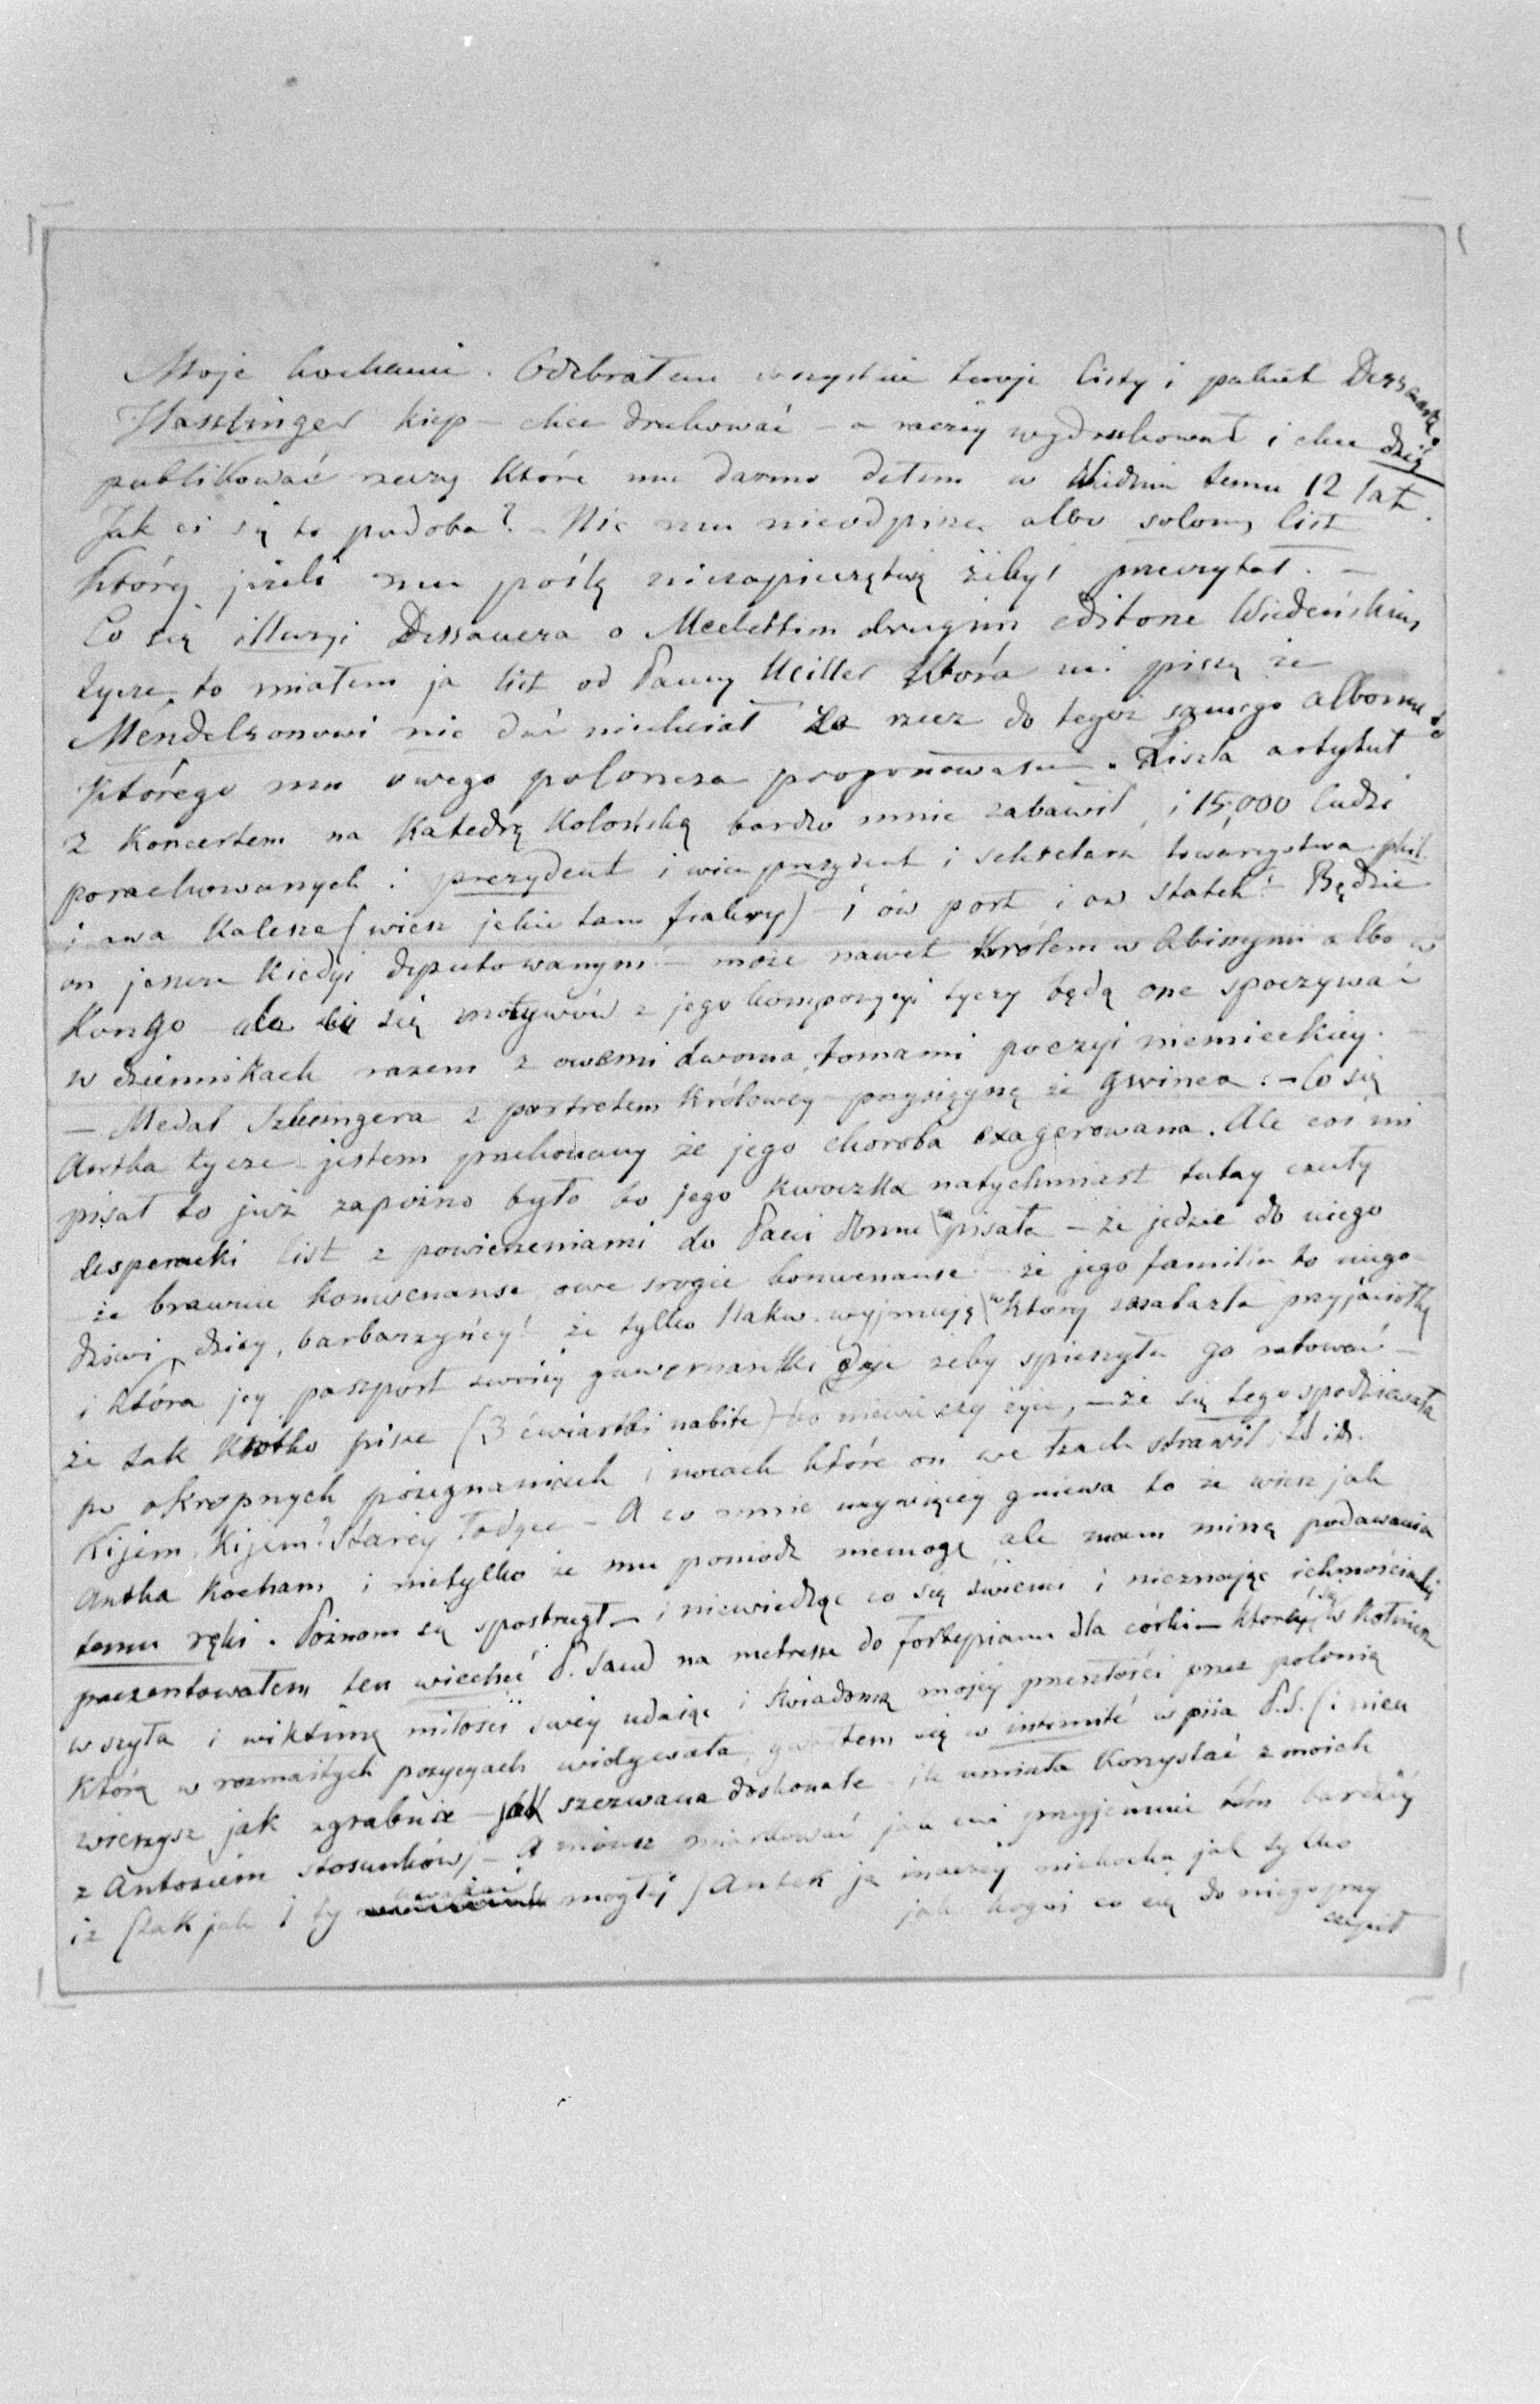 Moje kochanie. Odebrałem wszystkie twoje listy i pakiet Dessauera
Hasslinger kiep – chce drukować – a raczey wydrukował i chce dziś
publikować rzeczy które mu darmo dałem w Wiedniu temu 12 lat.
Jak ci się to podoba? – Nic mu nieodpiszę albo solony list
który jeżeli mu poślę niezapieczętuję żebyś przeczytał. –
Co się illuzyi Dessauera o Mechettim drugim editorze Wiedeńskim
tycze, to miałem ja list od Panny Müller która mi piszę że
Mendelsonowi nic dać niechciał za rzecz do tegoż samego albomu do
którego mu owego poloneza proponowałem. Liszta artykuł
z Koncertem na Katedrą Kolońską bardzo mnie zabawił, i 15,000 ludzi
porachowanych i prezydent i vice prezydent i sekretarz towarzystwa phil.
i owa Kalesza (wiesz jakie tam fiakry) – i ów port i ów statek! Będzie
on jeszcze kiedyś deputowanym – może nawet Królem w Abissynii albo w
Kongo – ale co się motywów z jego kompozycyi tyczy będą one spoczywać
w dziennikach razem z owemi dwoma tomami poezyi niemieckiey. –
– Medal Szlezingera z portretem Królowey przysięgnę że Gwinea. – Co się
Antka tycze jestem przekonany że jego choroba exagerowana. Ale coś mi
pisał to już zapóźno było bo jego kwoczka natychmiast tutay czuły
desperacki list z powierzeniami do Pani domu napisała – że jedzie do niego
– że brawuie konwenanse owe srogie konwenanse – że jego familia to niego-
dziwi, dzicy, barbarzyńcy! że tylko Nakw. wyjmują w który znalazła przyjaciółkę
i która jey paszport swoiey guwernantki daje żeby spieszyła go ratować –
że tak krótko pisze (3 ćwiartki nabite) bo niewie czy żyje, – że się tego spodziewała
po okropnych pożegnaniach i nocach które on we łzach strawił, itd.
Kijem, Kijem! Starey Todzce – A co mnie naywięcey gniewa to że wiesz jak
Antka kocham i nietylko że mu pomódz niemogę ale mam minę podawania
temu ręki. Póznom się spostrzegł – i niewiedząc co się święci i nieznając ichmościanki
prezentowałem ten wiecheć P. Sand na metresse do fortepianu dla córki – która się w kołnierz
wszyła i wiktimę miłości swey udając i świadomą mojey przeszłości przez polonią
którą w rozmaitych pozycyach widywała, gwałtem się w intimité wpiła P.S. (i nieu
wierzysz jak zgrabnie – jak szczwana doskonale ile umiała korzystać z moich
z Antosiem stosunków) – A możesz miarkować jak mi przyjemnie tém bardziéy
iż (tak jak i ty mogłeś) Antek ją inaczéy niekocha jak tylko
jak kogoś co się do niego przy
czepił